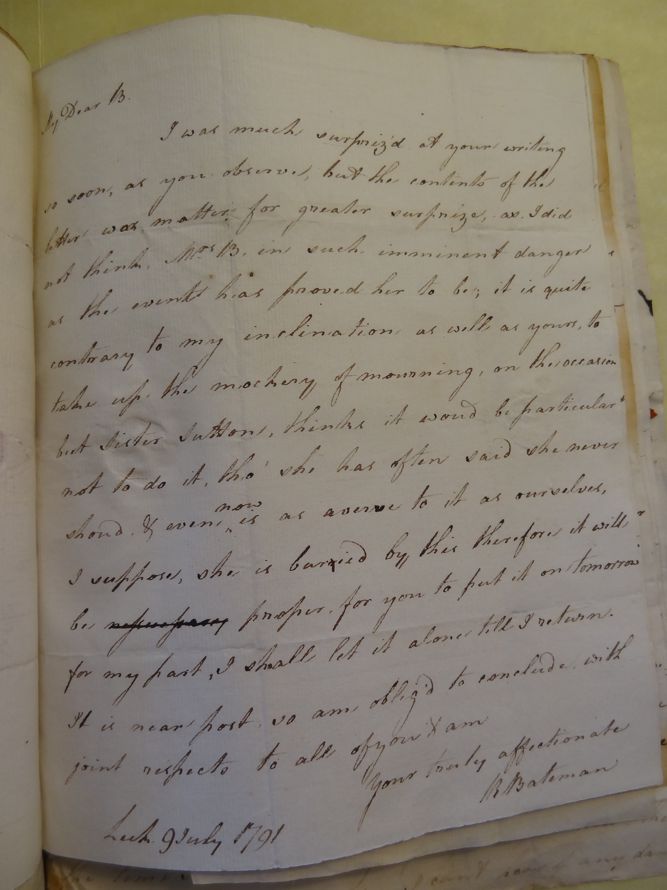 My Dear B.
I was much surpriz'd at your writing
so soon, as you observe, but the contents of the
letter was matter for greater surprize, as I did
not think Mrs B. in such imminent danger
as the event has proved her to be; it is quite
contrary to my inclination as well as yours, to
take up the mockery of mourning, on the occasion
but Sister Sutton, thinks it woud be particular
not to do it, tho' she has often said she never
shoud. & even now is as averse to it as ourselves,
I suppose, she is buried by this therefore it will
be proper for you to put it on tomorrow
for my part, I shall let it alone till I return.
It is near post so am oblig'd to conclude with
joint respects to all of you & am
Your truly affectionate
R Bateman
Leek 9 July 1791